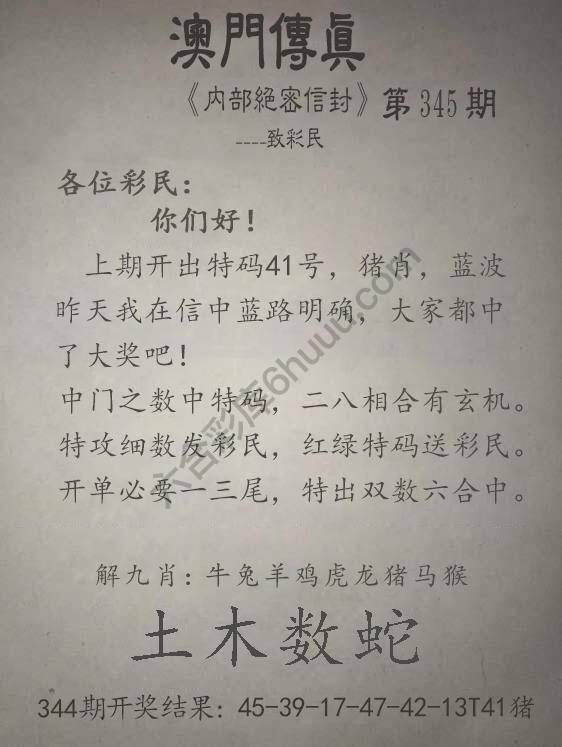 澳門傳真
《内部絕密信封》第345期
----致彩民
各位彩民：
你们好！
上期开出特码41号，猪肖，蓝波
昨天我在信中蓝路明确，大家都中
了大奖吧！
中门之数中特码，二八相合有玄机。
特攻细数发彩民，红绿特码送彩民。
开单必要一三尾，特出双数六合中。
解九肖：牛兔羊鸡虎龙猪马猴
土木数蛇
344期开奖结果：45-39-17-47-42-13T41猪
六合彩库6huuu.com